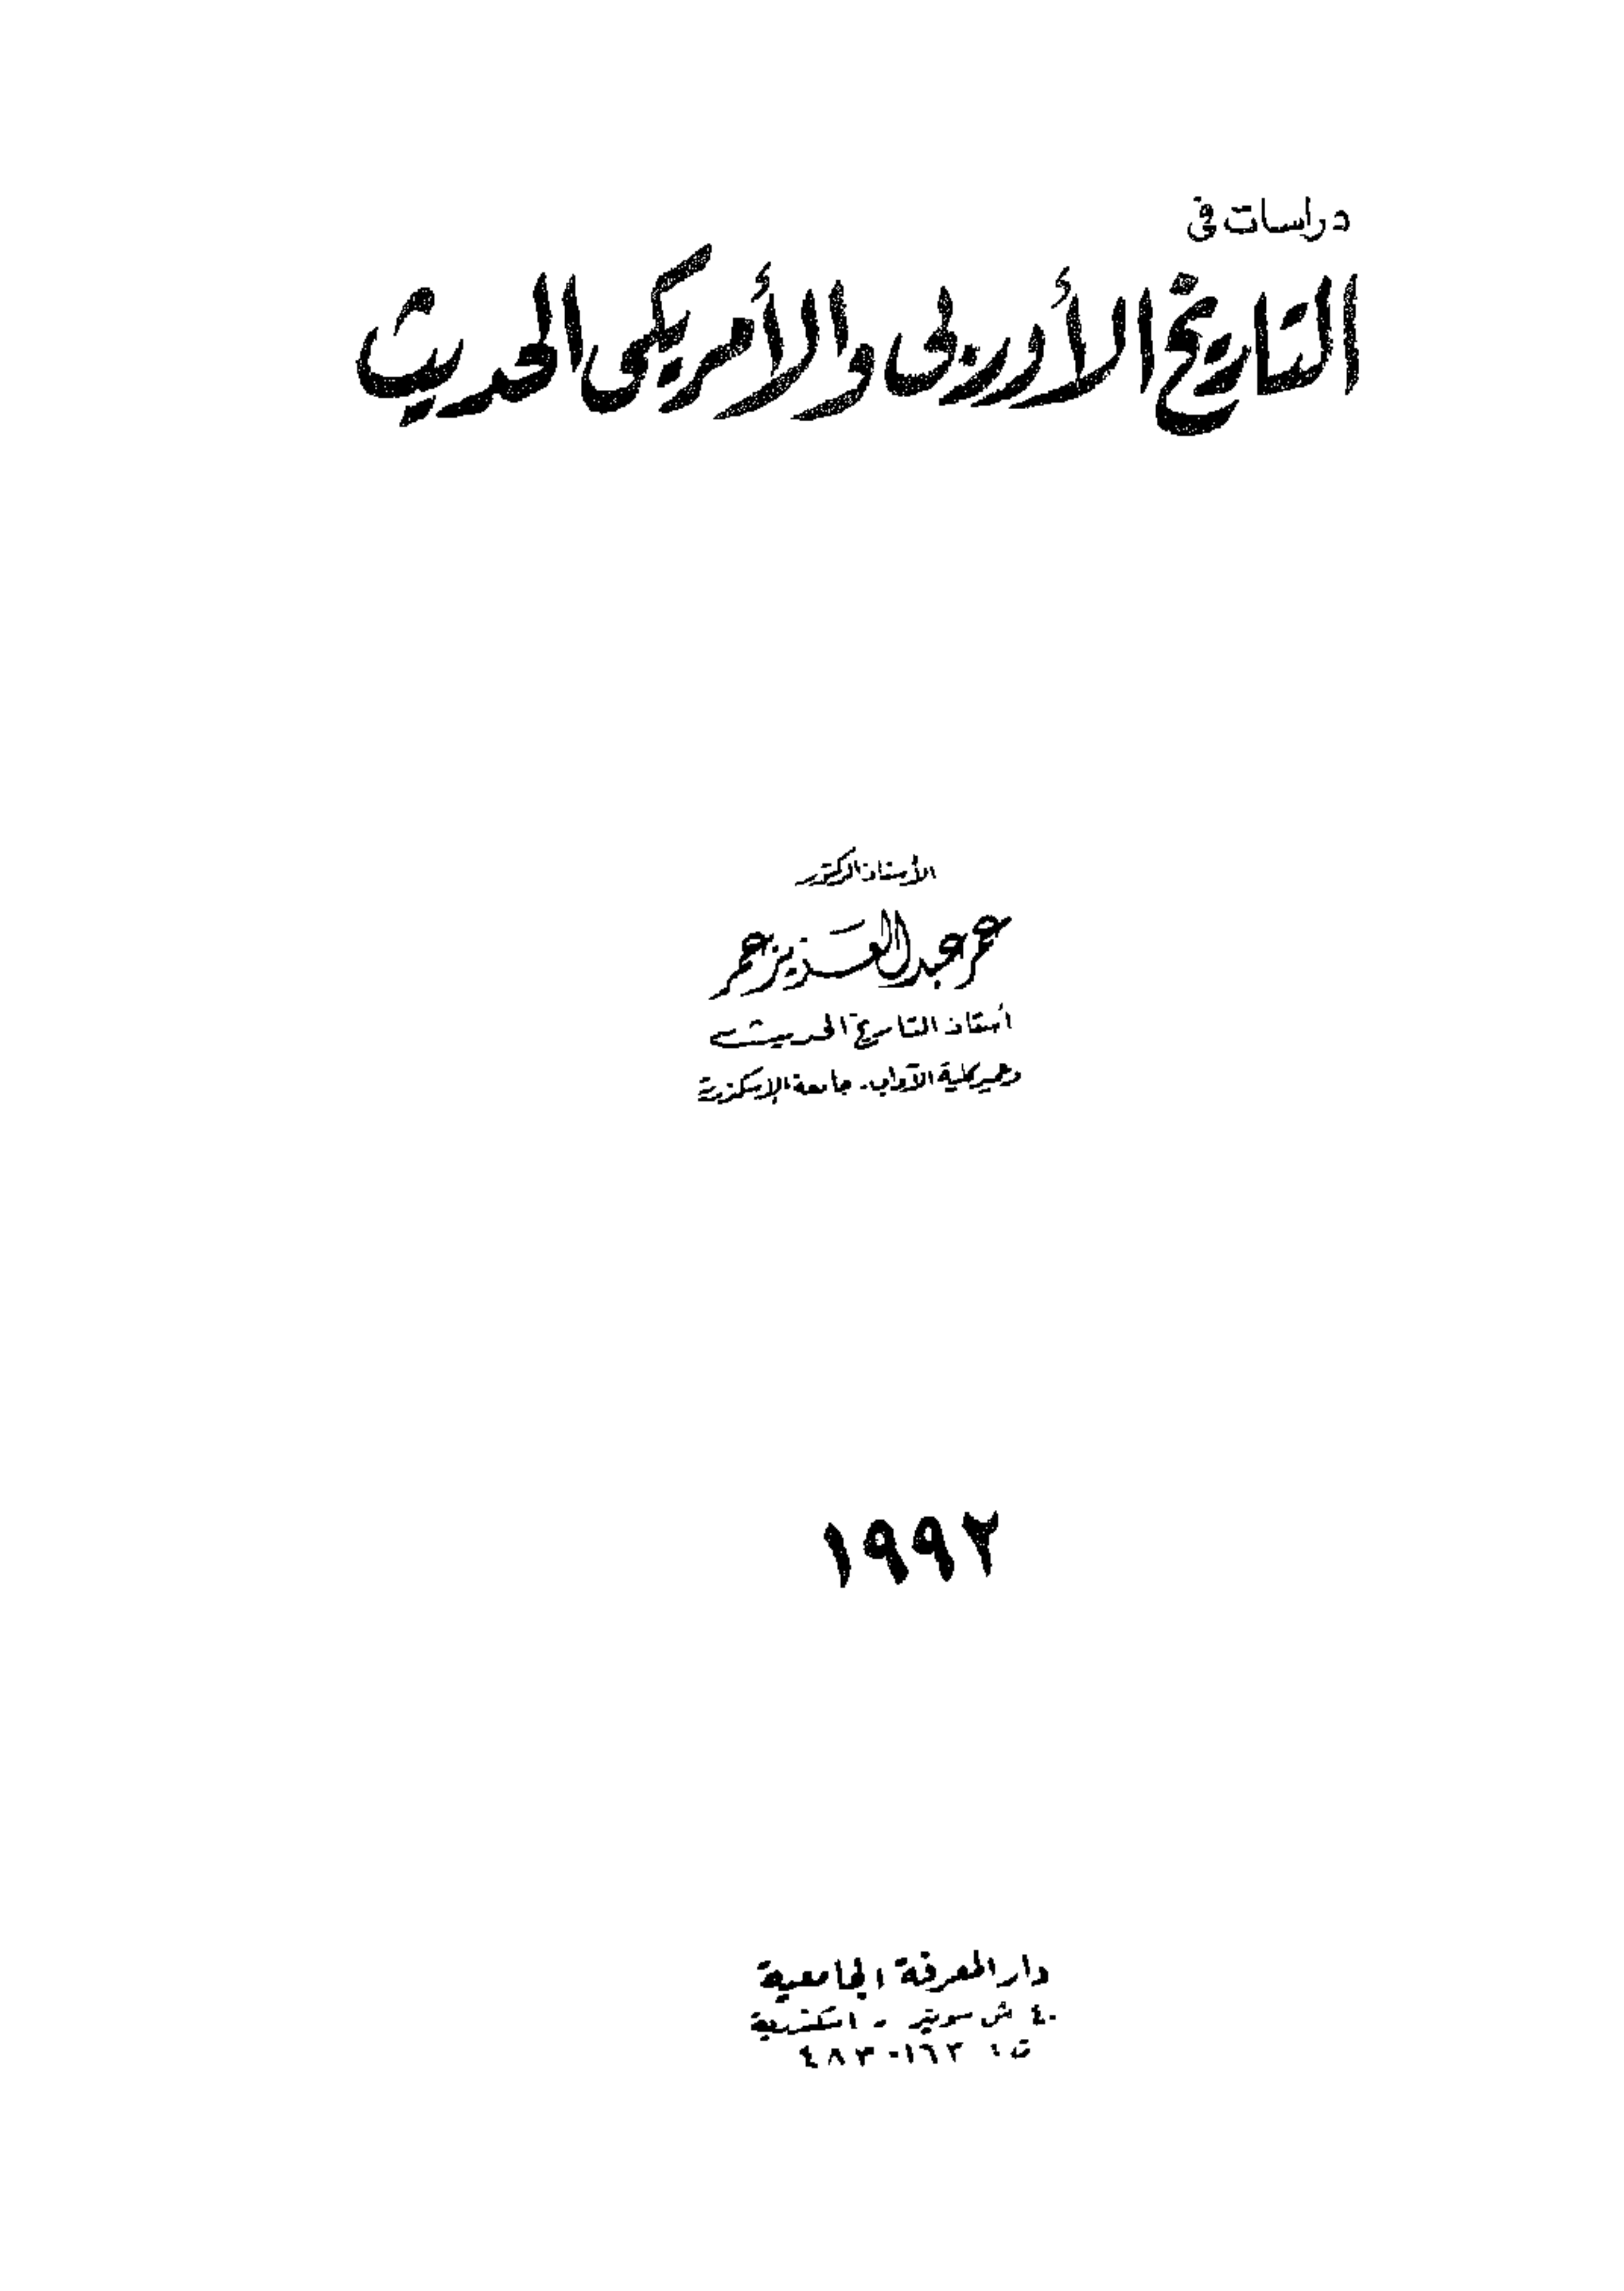 دراسات فى
التاريخ الأوربى والأمريكى الحديث
الأستاذ الدكتور
عمر عبد العزيز عمر
أستاذ التاريخ الحديث
وعميد كلية الآداب - جامعة الإسكندرية
١٩٩٢
دار المعرفة الجامعية
٤٠ ش سوتير - اسكندرية
ت : ٤٨٣٠١٦٣